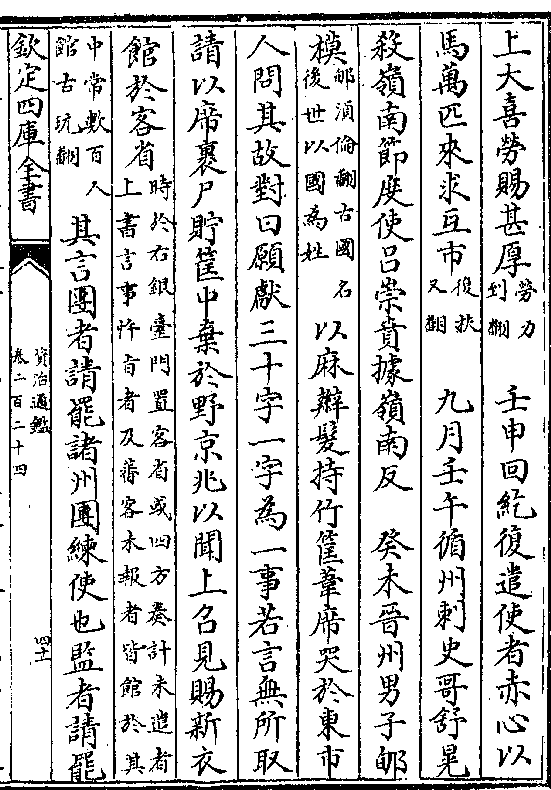 上大喜勞賜甚厚勞力
到翻
壬申回紇復遣使者赤心以
馬萬匹來求互市復扶
又翻
九月壬午循州刺史哥舒晃
殺嶺南節度使呂崇賁據嶺南反
癸未晉州男子郇
模郇須倫翻古國名
後世以國為姓
以麻辮髮持竹筐葦席哭於東市
人問其故對曰願獻三十字一字為一事若言無所取
請以席裹尸貯筐中棄於野京兆以聞上召見賜新衣
館於客省
時於右銀臺門置客省或四方奏計未遣者
上書言事忤旨者及蕃客未報者皆館於其
中常數百人
館古玩翻
其言團者請罷諸州團練使也監者請罷
欽定四庫全書
資治通鑑
卷二百二十四
四十